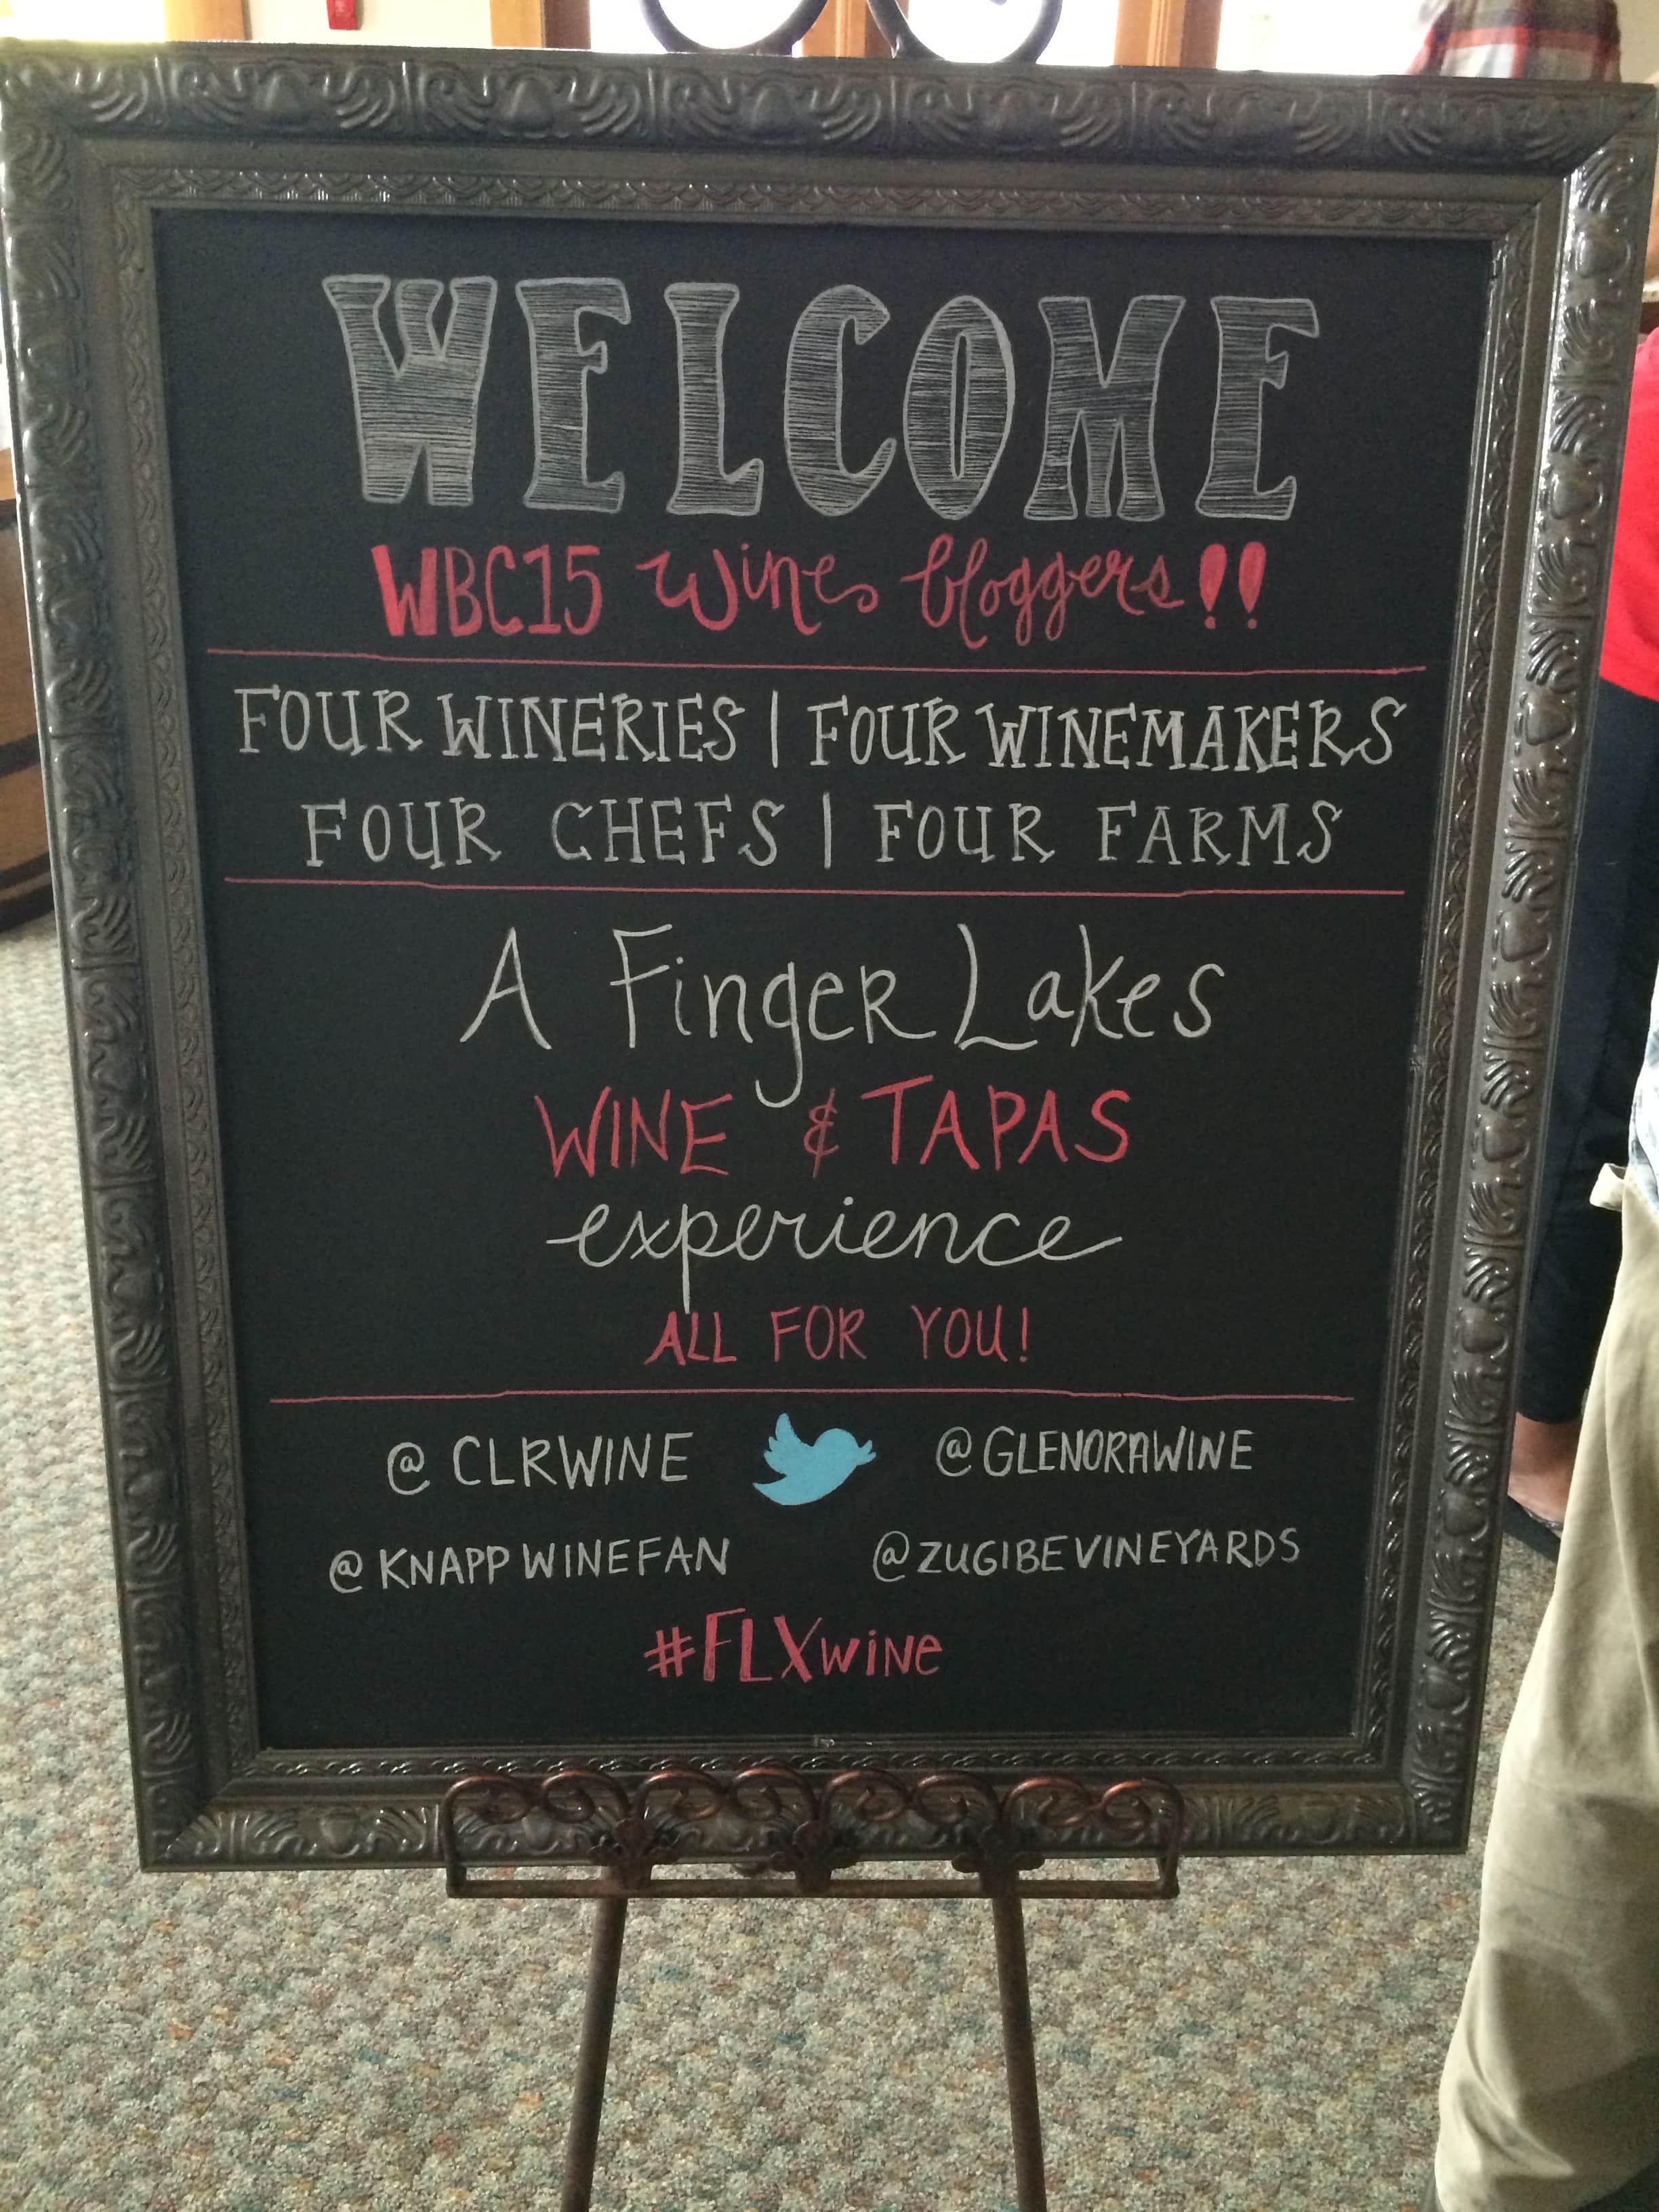 WELCOME
WBC15 wine bloggers!!
FOUR WINERIES | FOUR WINEMAKERS
FOUR CHEFS | FOUR FARMS
A Finger Lakes
WINE & TAPAS
experience
ALL FOR YOU!
@CLRWINE @GLENORAWINE
@KNAPPWINEFAN @ZUGIBEVINEYARDS
#FLXwine